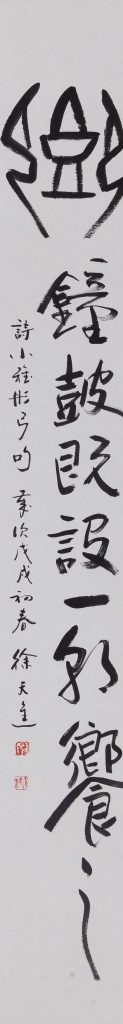 饗
鐘鼓既設一朝饗之
詩小雅彤弓句 歲次戊戌初春 徐天進